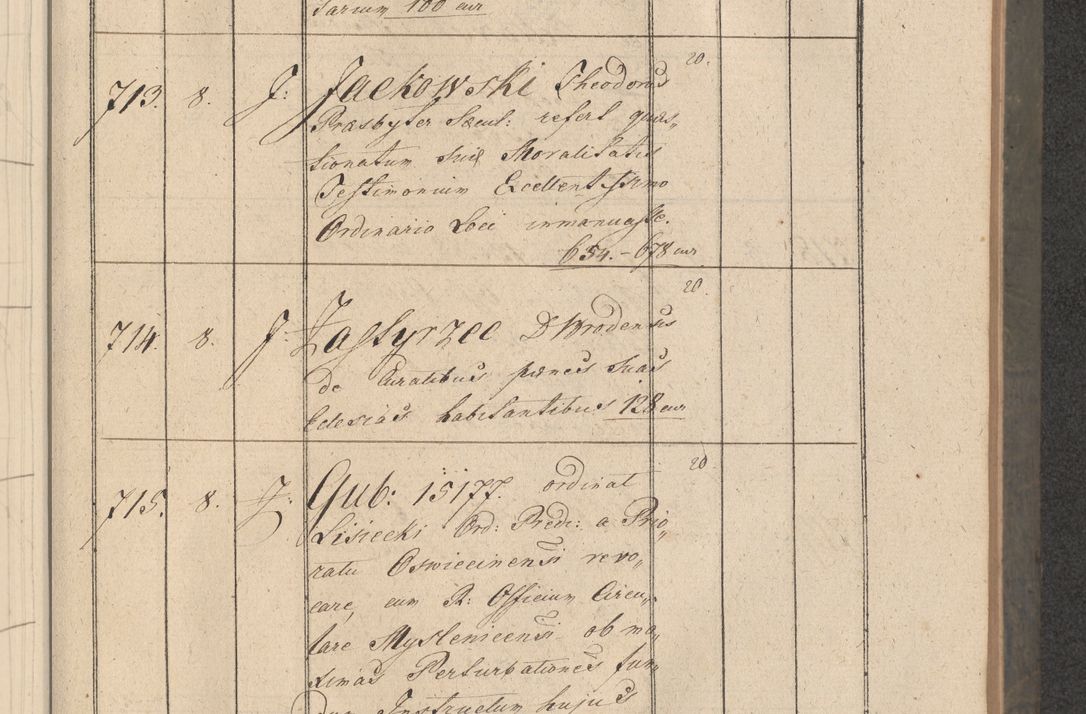 tarium 100 cur
713. 8. J: Jackowski Theodorus 20.
Præsbyter Sæcul: refert quæs„
tionatum sui Moralitatis
Testimonium Excellentissimo
Ordinario Loci inmanuasse.
654. - 678 cur
714. 8. J. Zastyrzec D Wrodensis 20.
de Curatibus penes suas
Eclesias habitantibus 128 cur
715. 8. J: Gub: 15177. ordinat 20.
Lisiecki Ord: Predi: a Prio„
ratu Oswiecinensi revo„
care, cum R: Officium Circu„
lare Myslenicensi ob ma„
ximas Perturbationes fun„
Instructum hujus